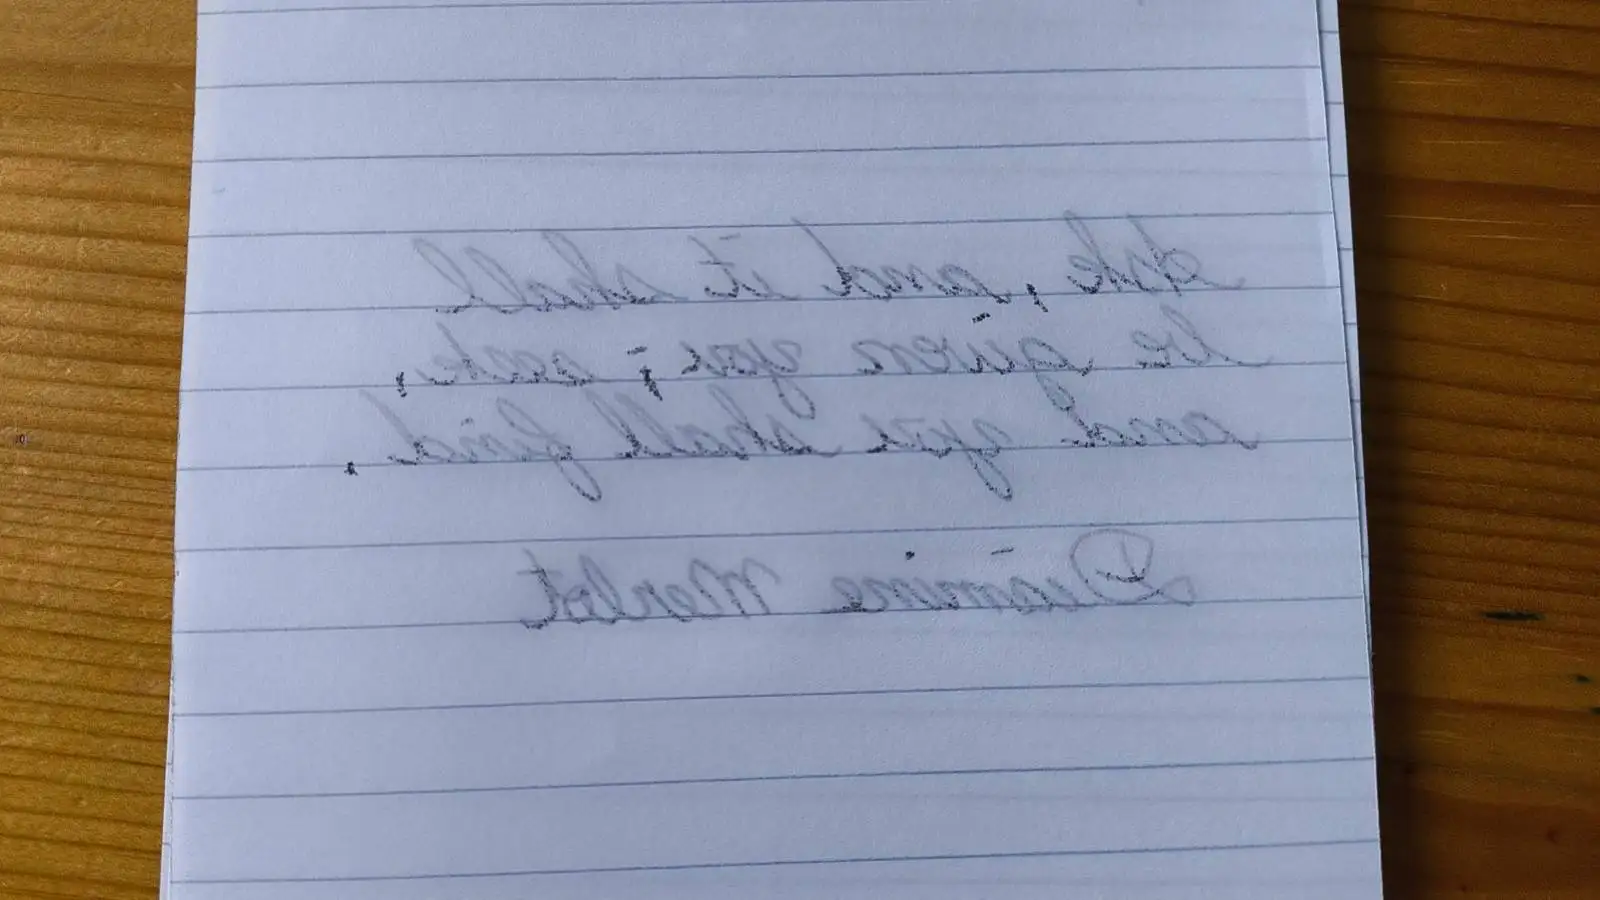 Ask, and it shall
be given you; seek,
and you shall find.
Diamine Merlot